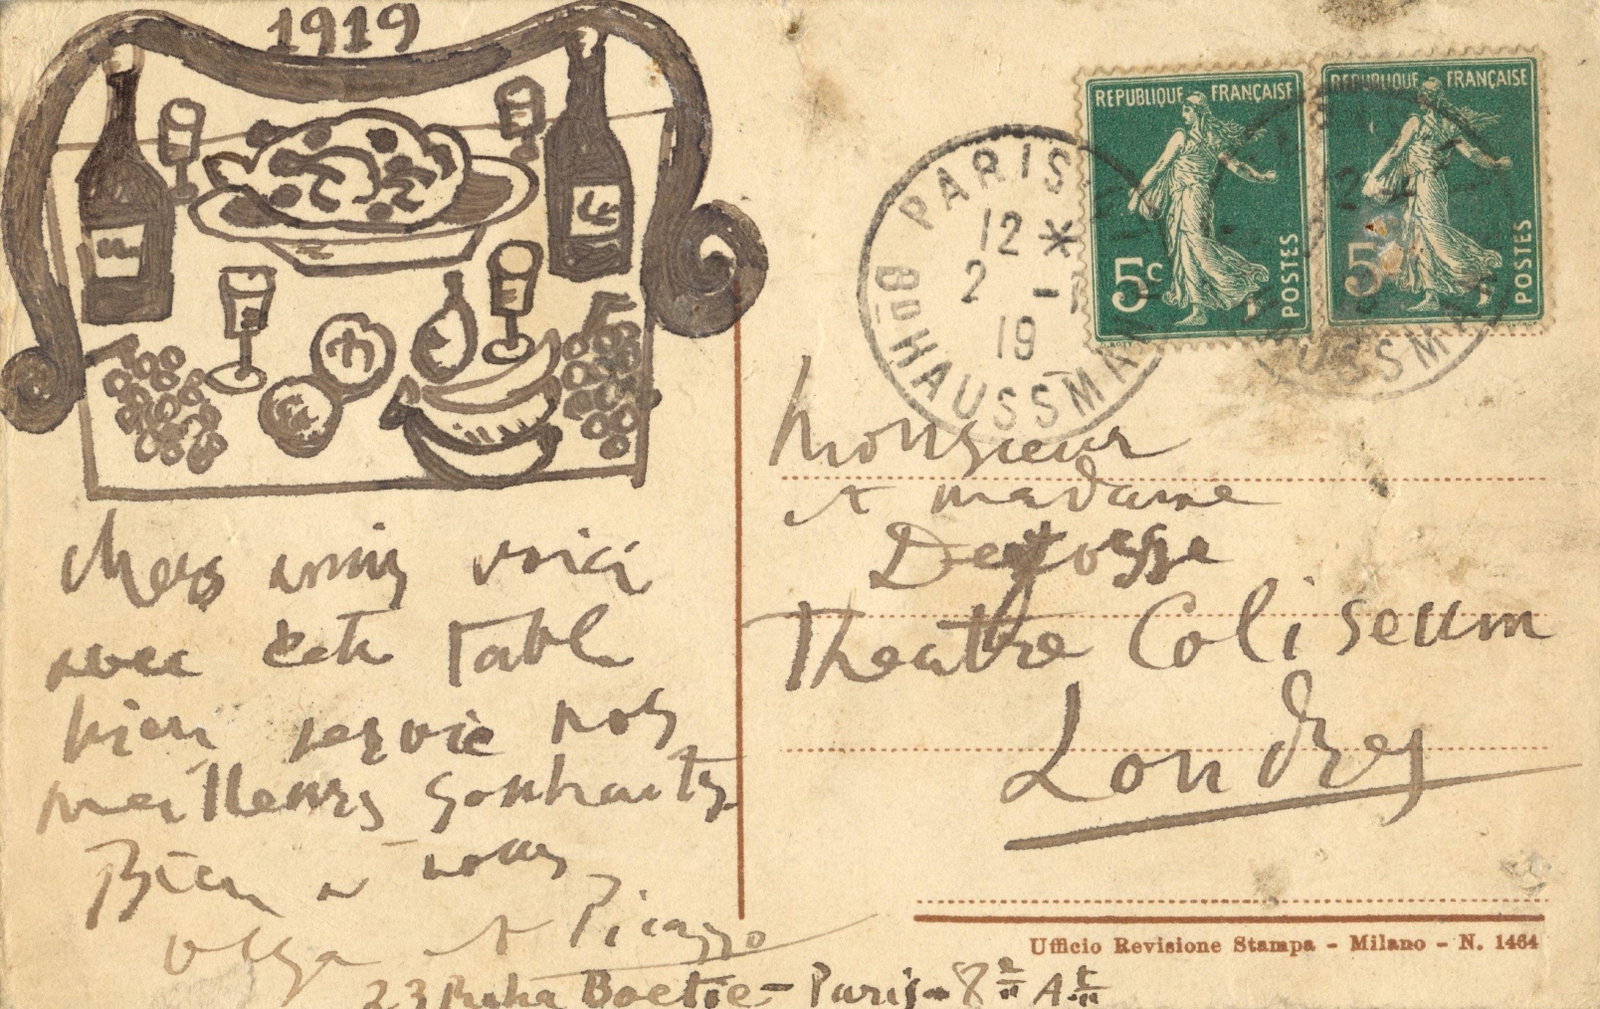 1919
Chers amis voici
avec cete table
bien servie nos
meilleurs souhaits
Bien a vous
Olga et Picasso
23 Rue la Boetie - Paris - 8e At
REPUBLIQUE FRANÇAISE
5c
POSTES
REPUBLIQUE FRANÇAISE
5
POSTES
PARIS
12 *
2 -1
19
Bd HAUSSMAN
Monsieur
et madame
Theatre Coliseum
Londres
Ufficio Revisione Stampa - Milano - N. 1464